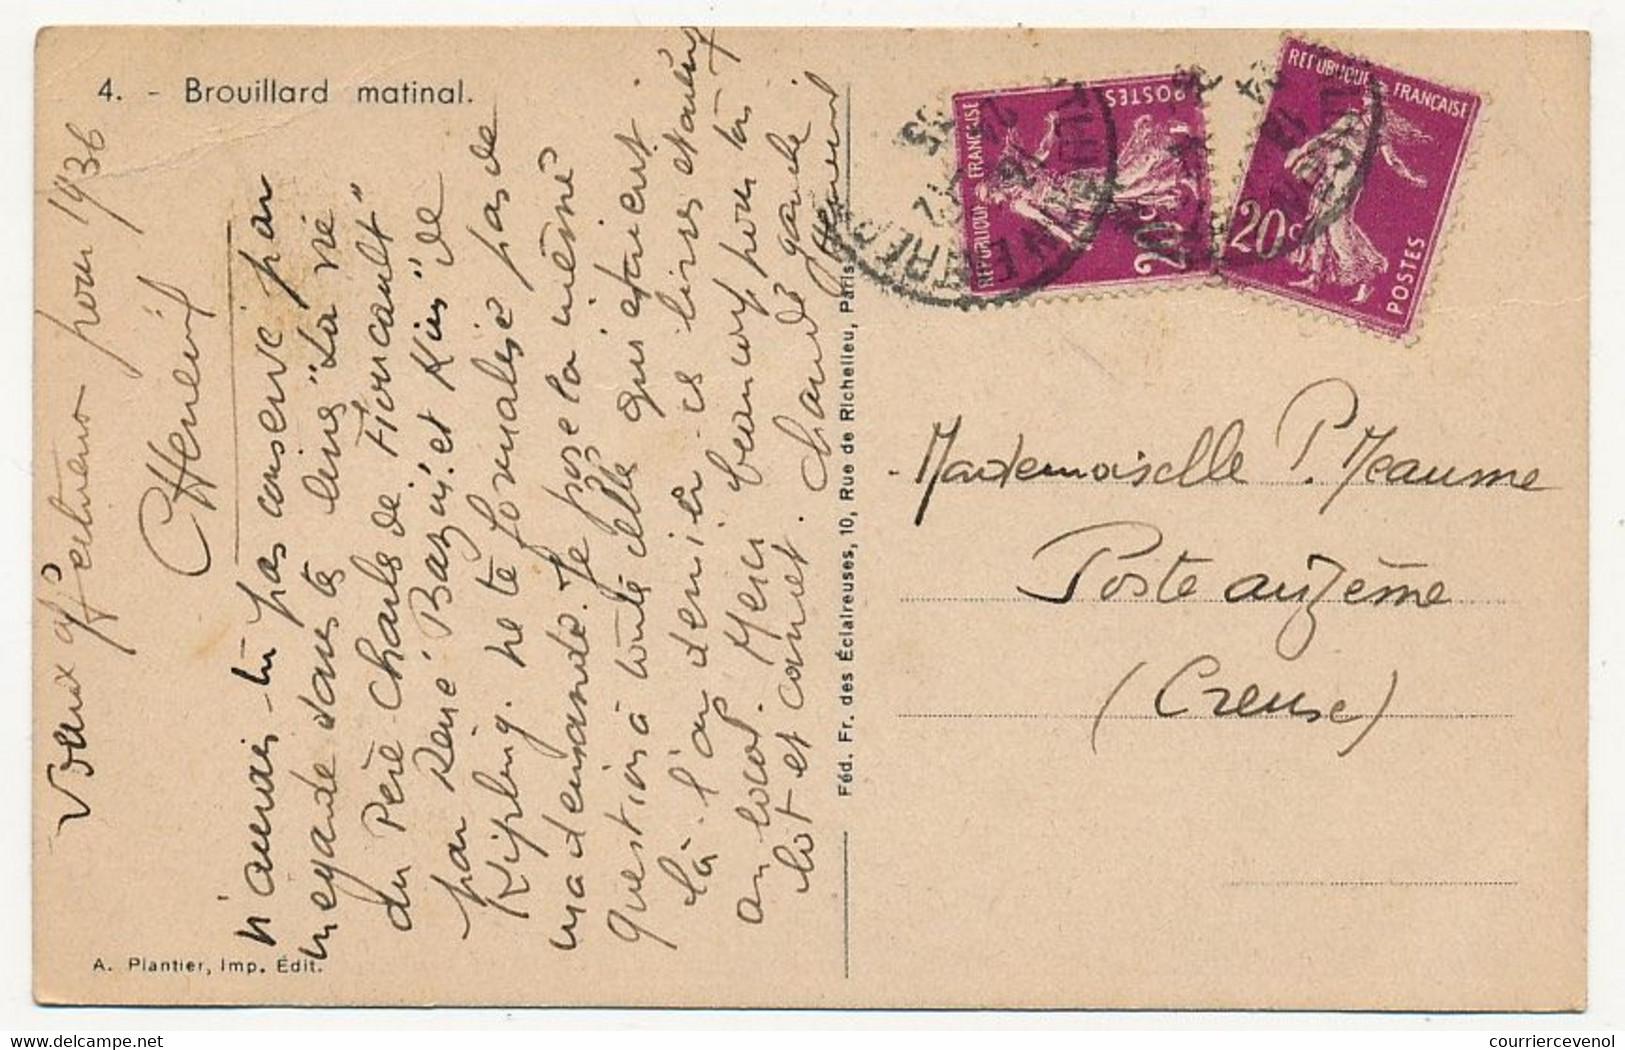 4. - Brouillard matinal.
Vœux affectueux pour 1936
CHeneuf
n'aurais-tu pas conservé par
mégarde dans tes livres "La vie
du Père Charles de Foucault"
par René Bazin, et "Kim" de
Kipling. Ne te formalise pas de
ma demande. Je pose la même
question à toute celle qui étaient
là l'an dernier - ces livres étaient
au local. Merci beaucoup pour tes
et carnet. chaude garde
A. Plantier, Imp. Édit.
Féd. Fr. des Éclaireuses, 10, Rue de Richelieu, Paris
REPUBLIQUE FRANÇAISE
POSTES
20c
REPUBLIQUE FRANÇAISE
POSTES
20c
Mademoiselle P. Meaume
Poste auzême
(Creuse)
delcampe.net
courriercevenol